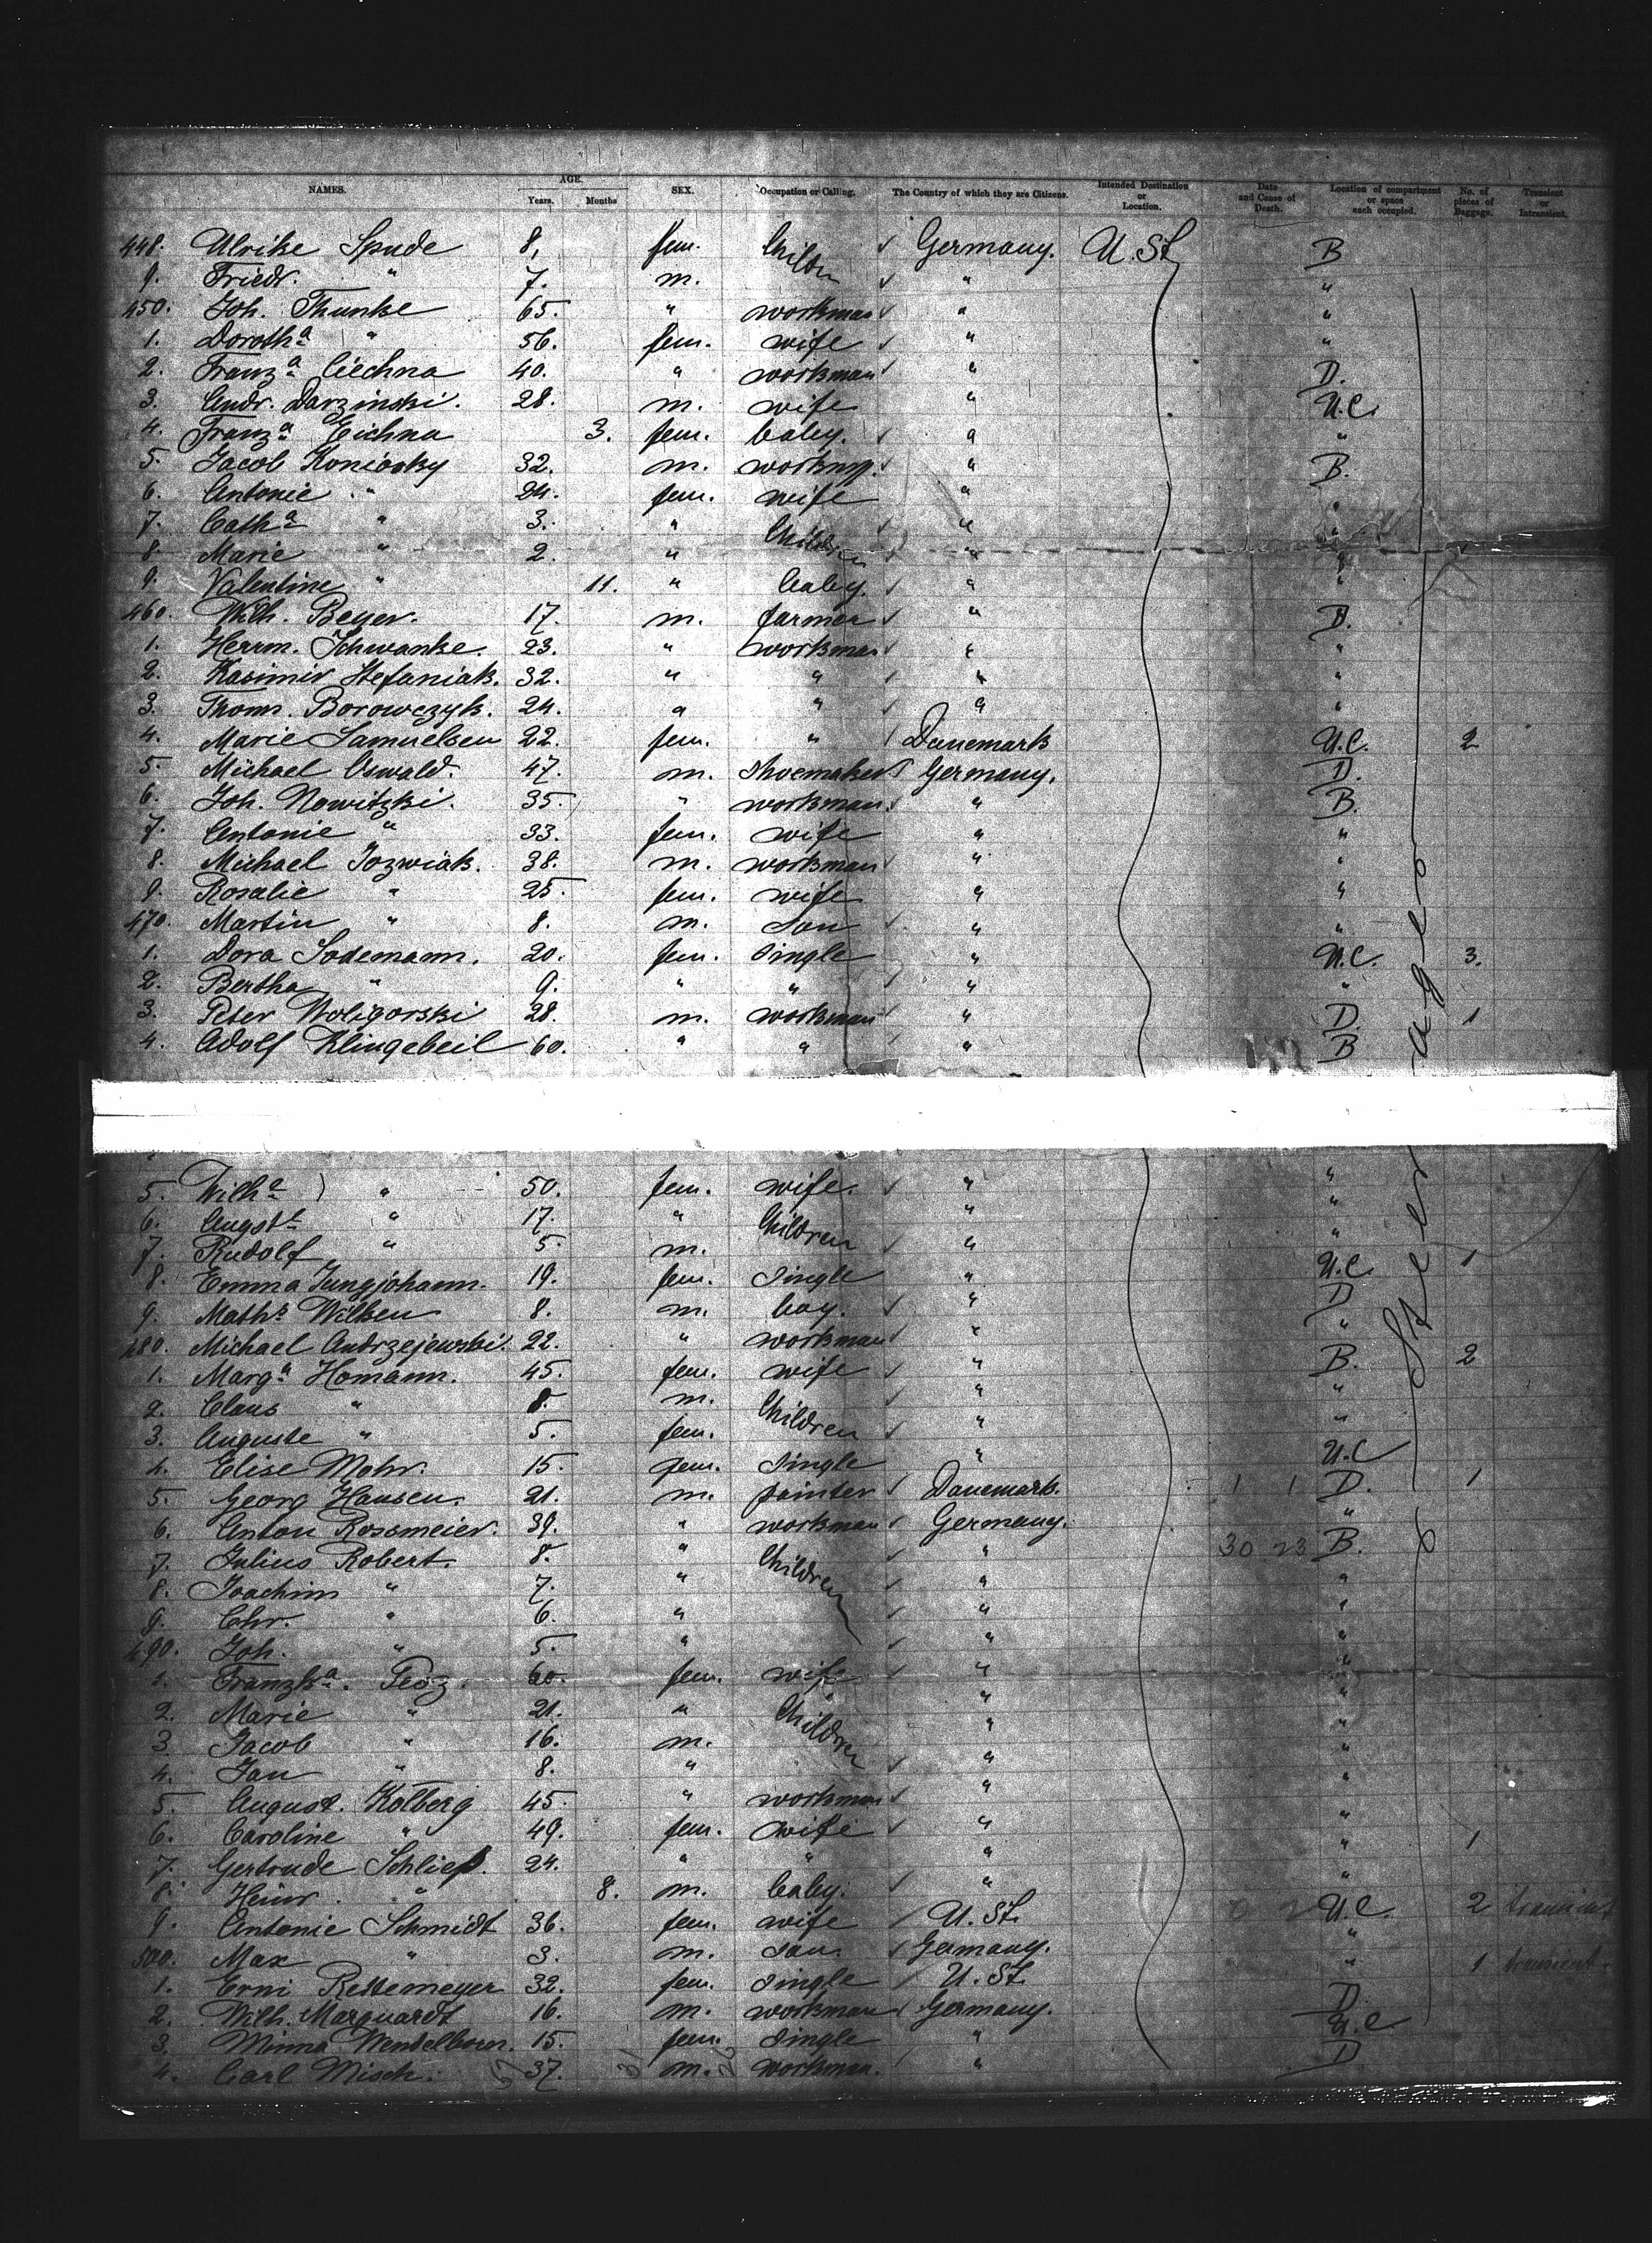 NAMES. AGE. Years. Months SEX. Occupation or Calling. The Country of which they are Citizens. Intended Destination or Location. Date and Cause of Death. Location of compartment or space each occupied. No. of pieces of Baggage. Transient or Intransient.
448. Ulrike Spude 8, fem. Childn Germany. U. St B
9. Friedr. " 7. m. " "
450. Joh. Thunke 65. " workman " "
1. Doroth a " 56. fem. wife " "
2. Franz a Ciechna 40. " workman " D.
3. Andr. Darzinski. 28. m. wife " U.C.
4. Franz a Cichna 3. fem. baby. " "
5. Jacob Koniarky 32. m. workmn. " B.
6. Antonie " 24. fem. wife " "
7. Cath a " 3. " Children " "
8. Marie " 2. " " "
9. Valentine " 11. " baby. " "
460. Wilh. Beyer. 17. m. farmer " D.
1. Herrm. Schwanke. 23. " workman " "
2. Kasimir Stefaniak. 32. " " " "
3. Thom. Borowczyk. 24. " " " "
4. Marie Samuelsen 22. fem. " Danemark U.C. 2
5. Michael Oswald. 47. m. shoemaker Germany. D.
6. Joh. Nowitzki. 35. " workman " B.
7. Antonie " 33. fem. wife " "
8. Michael Jozwiak. 38. m. workman " "
9. Rosalie " 25. fem. wife " "
470. Martin " 8. m. son " "
1. Dora Sodemann. 20. fem. single " U.C. 3.
2. Bertha " 9. " " " "
3. Peter Woligorski 28. m. workman " D. 1
4. Adolf Klingebeil 60. " " " B
Steerage
5. Wilh e " 50. fem. wife. " "
6. Augst e " 17. " Children " "
7. Rudolf " 5. m. " "
8. Emma Jungjohann. 19. fem. single " U.C. 1
9. Maths Wilken 8. m. boy. " D
480. Michael Andrzejewski. 22. " workman " "
1. Marg a Homann. 45. fem. wife " B. 2
2. Claus " 8. m. Children " "
3. Auguste " 5. fem. " "
4. Elise Mohr. 15. fem. single " U.C
5. Georg Hansen. 21. m. painter Danemark. 1 1 D. 1
6. Anton Rossmeier. 39. " workman Germany. "
7. Julius Robert. 8. " Children " 30 23 B.
8. Joachim " 7. " " "
9. Chr. " 6. " " "
490. Joh. " 5. " " "
1. Franzk a. 60. fem. wife " "
2. Marie " 21. " Children " "
3. Jacob " 16. m. " "
4. Jan " 8. " " "
5. August. Kolberg 45. " workman " "
6. Caroline " 49. fem. wife " "
7. Gertrude Schlief. 24. " " " " 1
8. Heinr. " 8. m. baby. " "
9. Antonie Schmidt 36. fem. wife U. St. U.C. 2 transient
500. Max " 3. m. son. Germany. "
1. Erni Rettemeyer 32. fem. single U. St. " 1 transient.
2. Wilh. Marquardt 16. m. workman Germany. D
3. Minna Wendelborn. 15. fem. single " U.C
4. Carl Misch. 37. m. workman. " D